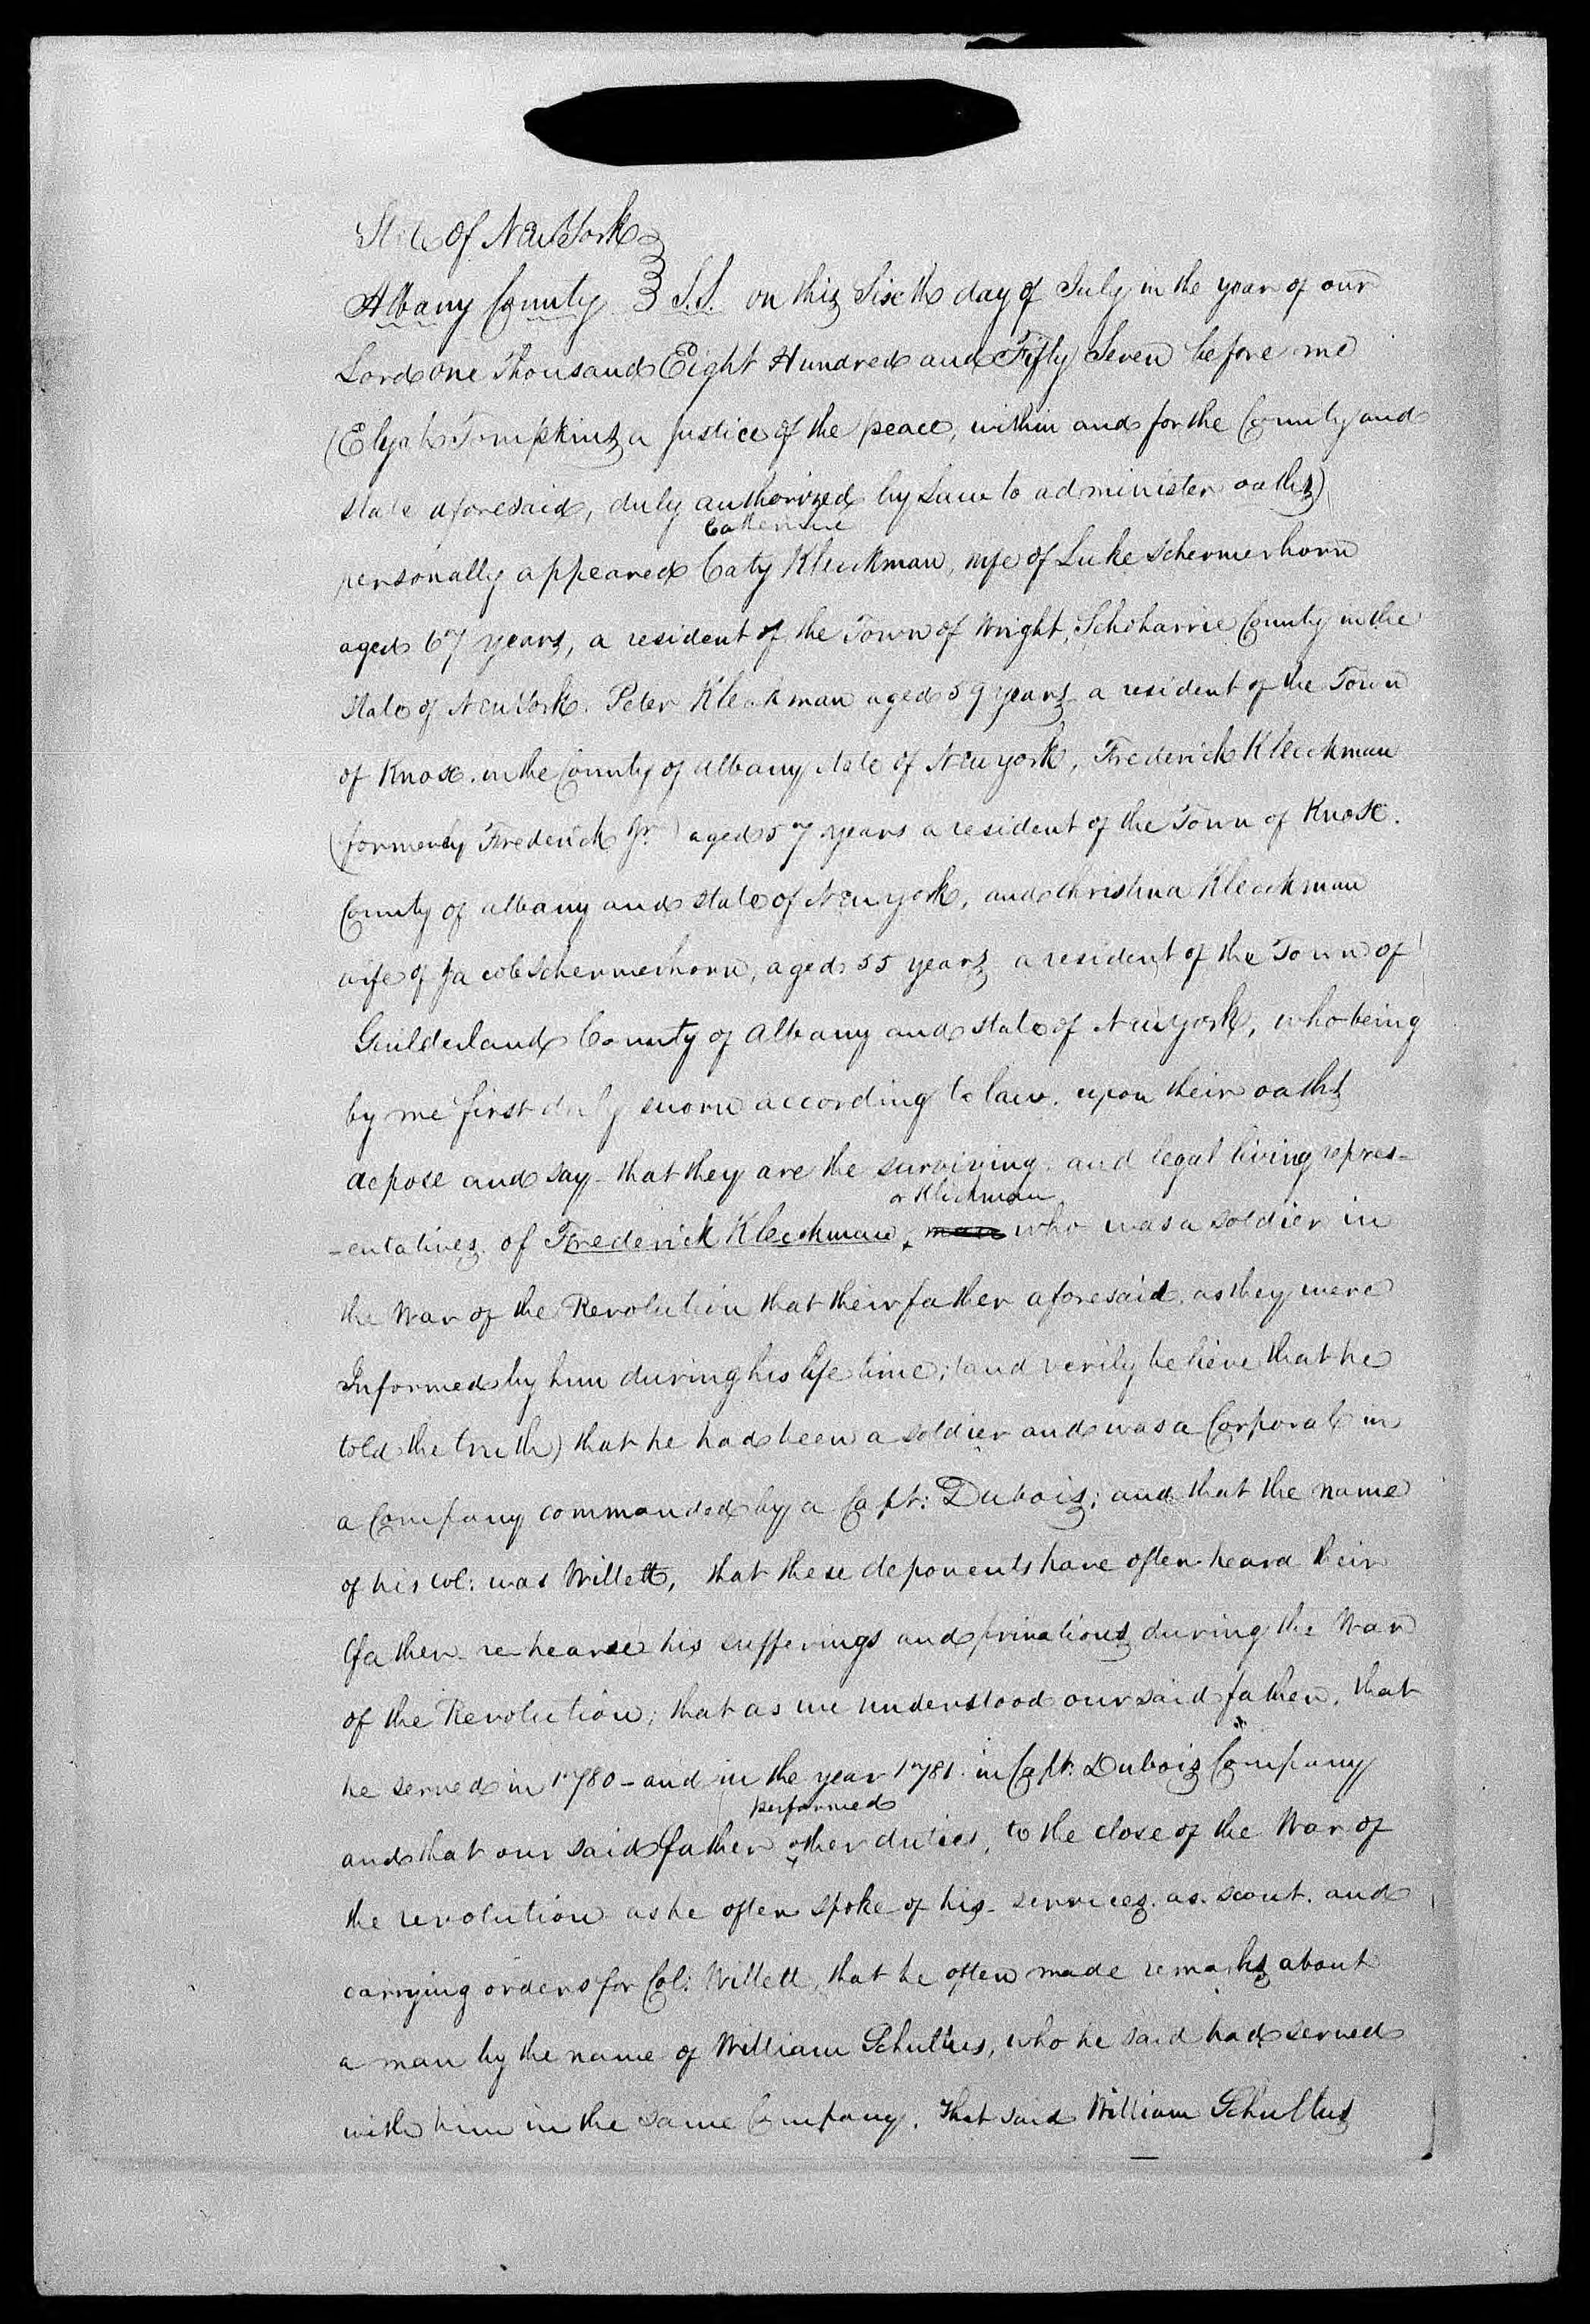 State of New York
Albany County } S.S. on this Sixth day of July in the year of our
Lord one Thousand Eight Hundred and Fifty Seven before me
(Elijah Tompkins a justice of the peace, within and for the County and
state aforesaid, duly authorized by Law to administer oaths)
Catherine
personally appeared Caty Kleckman, wife of Luke Schermerhorn
aged 67 years, a resident of the Town of Wright, Schoharrie County in the
State of New York. Peter Kleckman aged 59 years a resident of the Town
of Knox. in the County of albany state of New york, Frederick Kleckman
(formerly Frederick Jr.) aged 57 years a resident of the Town of Knox.
County of albany and state of New york, and Christina Kleckman
wife of Jacob Schermerhorn, aged 55 years a resident of the Town of
Guilderland County of albany and state of New york, who being
by me first duly sworn according to law. upon their oaths
depose and say - that they are the surviving and legal living repres-
or Klickman
-entatives of Frederick Kleckman, who was a soldier in
the War of the Revolution that their father aforesaid. as they were
Informed by him during his life time; (and verily believe that he
told the truth) that he had been a soldier and was a Corporal in
a Company commanded by a Capt: Dubois; and that the name
of his Col: was Willett, that these deponents have often heard their
father rehearse his sufferings and privations during the War
of the Revolution; that as we understood our said father, that
he served in 1780 - and in the year 1781 in Capt: Dubois Company
performed
and that our said father other duties, to the close of the War of
the revolution as he often spoke of his services. as. scout. and
carrying orders for Col: Willett, that he often made remarks about
a man by the name of William Schultus, who he said had served
with him in the same Company. That said William Schultus